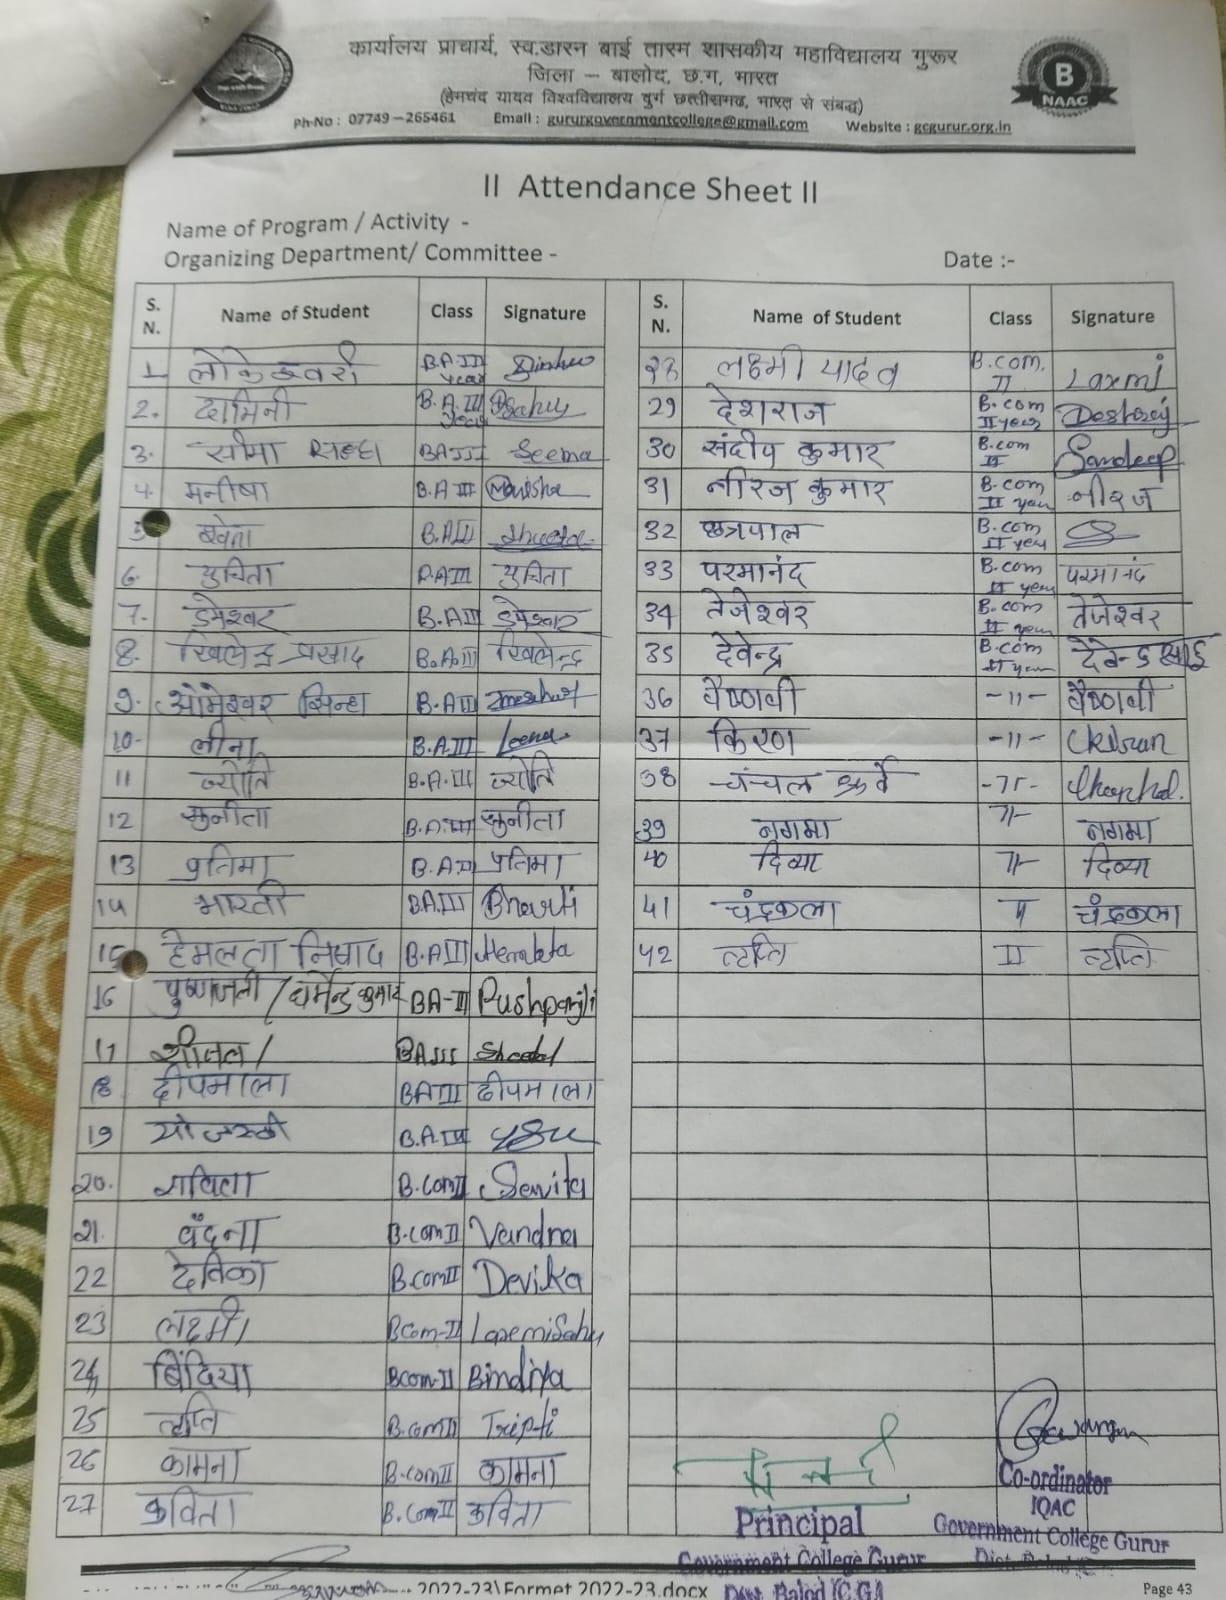 कार्यालय प्राचार्य, स्व.डारन बाई तारम शासकीय महाविद्यालय गुरूर
जिला – बालोद, छ.ग, भारत
(हेमचंद यादव विश्वविद्यालय दुर्ग छत्तीसगढ, भारत से संबद्ध)
Ph-No : 07749-265461 Email : gururgovernmentcollege@gmail.com Website : gcgurur.org.in
B
NAAC
II Attendance Sheet II
Name of Program / Activity -
Organizing Department/ Committee -
Date :-
S. N. Name of Student Class Signature
1. B.A III year
2. दामिनी B.A. III year
3. सीमा BA III Seema
4. मनीषा B.A III Manisha
5 B.A III
6. सुचिता B.A III सुचिता
7. डोमेश्वर B.A III डोमेश्वर
8. खिलेन्द्र प्रसाद B.A. III खिलेन्द्र
9. ओमेश्वर सिन्हा B.A III
10- लीना B.A. III Leena
11 ज्योति B.A. III ज्योति
12 सुनीता B.A. III सुनीता
13 प्रतिमा B.A. III प्रतिमा
14 भारती B.A. III Bharti
15 हेमलता निषाद B.A III Hemlata
16 /धर्मेन्द्र कुमार BA-III Pushpanjli
17 शीतल/ BA III Sheetal
18 दीपमाला BA III दीपमाला
19 B.A. III
20. सविता B.Com II Savita
21. वंदना B.Com II Vandna
22 देविका B.Com II Devika
23 लक्ष्मी Bcom-II Laxmi Sahu
24 बिंदिया Bcom-II Bindiya
25 तृप्ति B.com II Tripti
26 कामना B.com II कामना
27 कविता B.Com II कविता
S. N. Name of Student Class Signature
28 लक्ष्मी यादव B.com. II Laxmi
29 देशराज B.com II year Deshraj
30 संदीप कुमार B.com II Sandeep
31 नीरज कुमार B.com II year नीरज
32 छत्रपाल B.com II year
33 परमानंद B.com II year परमानंद
34 तेजेश्वर B.com II year तेजेश्वर
35 देवेन्द्र B.com II year
36 वैष्णवी -11- वैष्णवी
37 किरण -11- Kiran
38 चंचल -11- Chanchal.
39 नगमा नगमा
40 दिव्या दिव्या
41 चंद्रकला चंद्रकला
42 तृप्ति II तृप्ति
Principal
Government College Gurur
Dist. Balod (C.G.)
Co-ordinator
IQAC
Government College Gurur
2022-23\Formet 2022-23.docx
Page 43